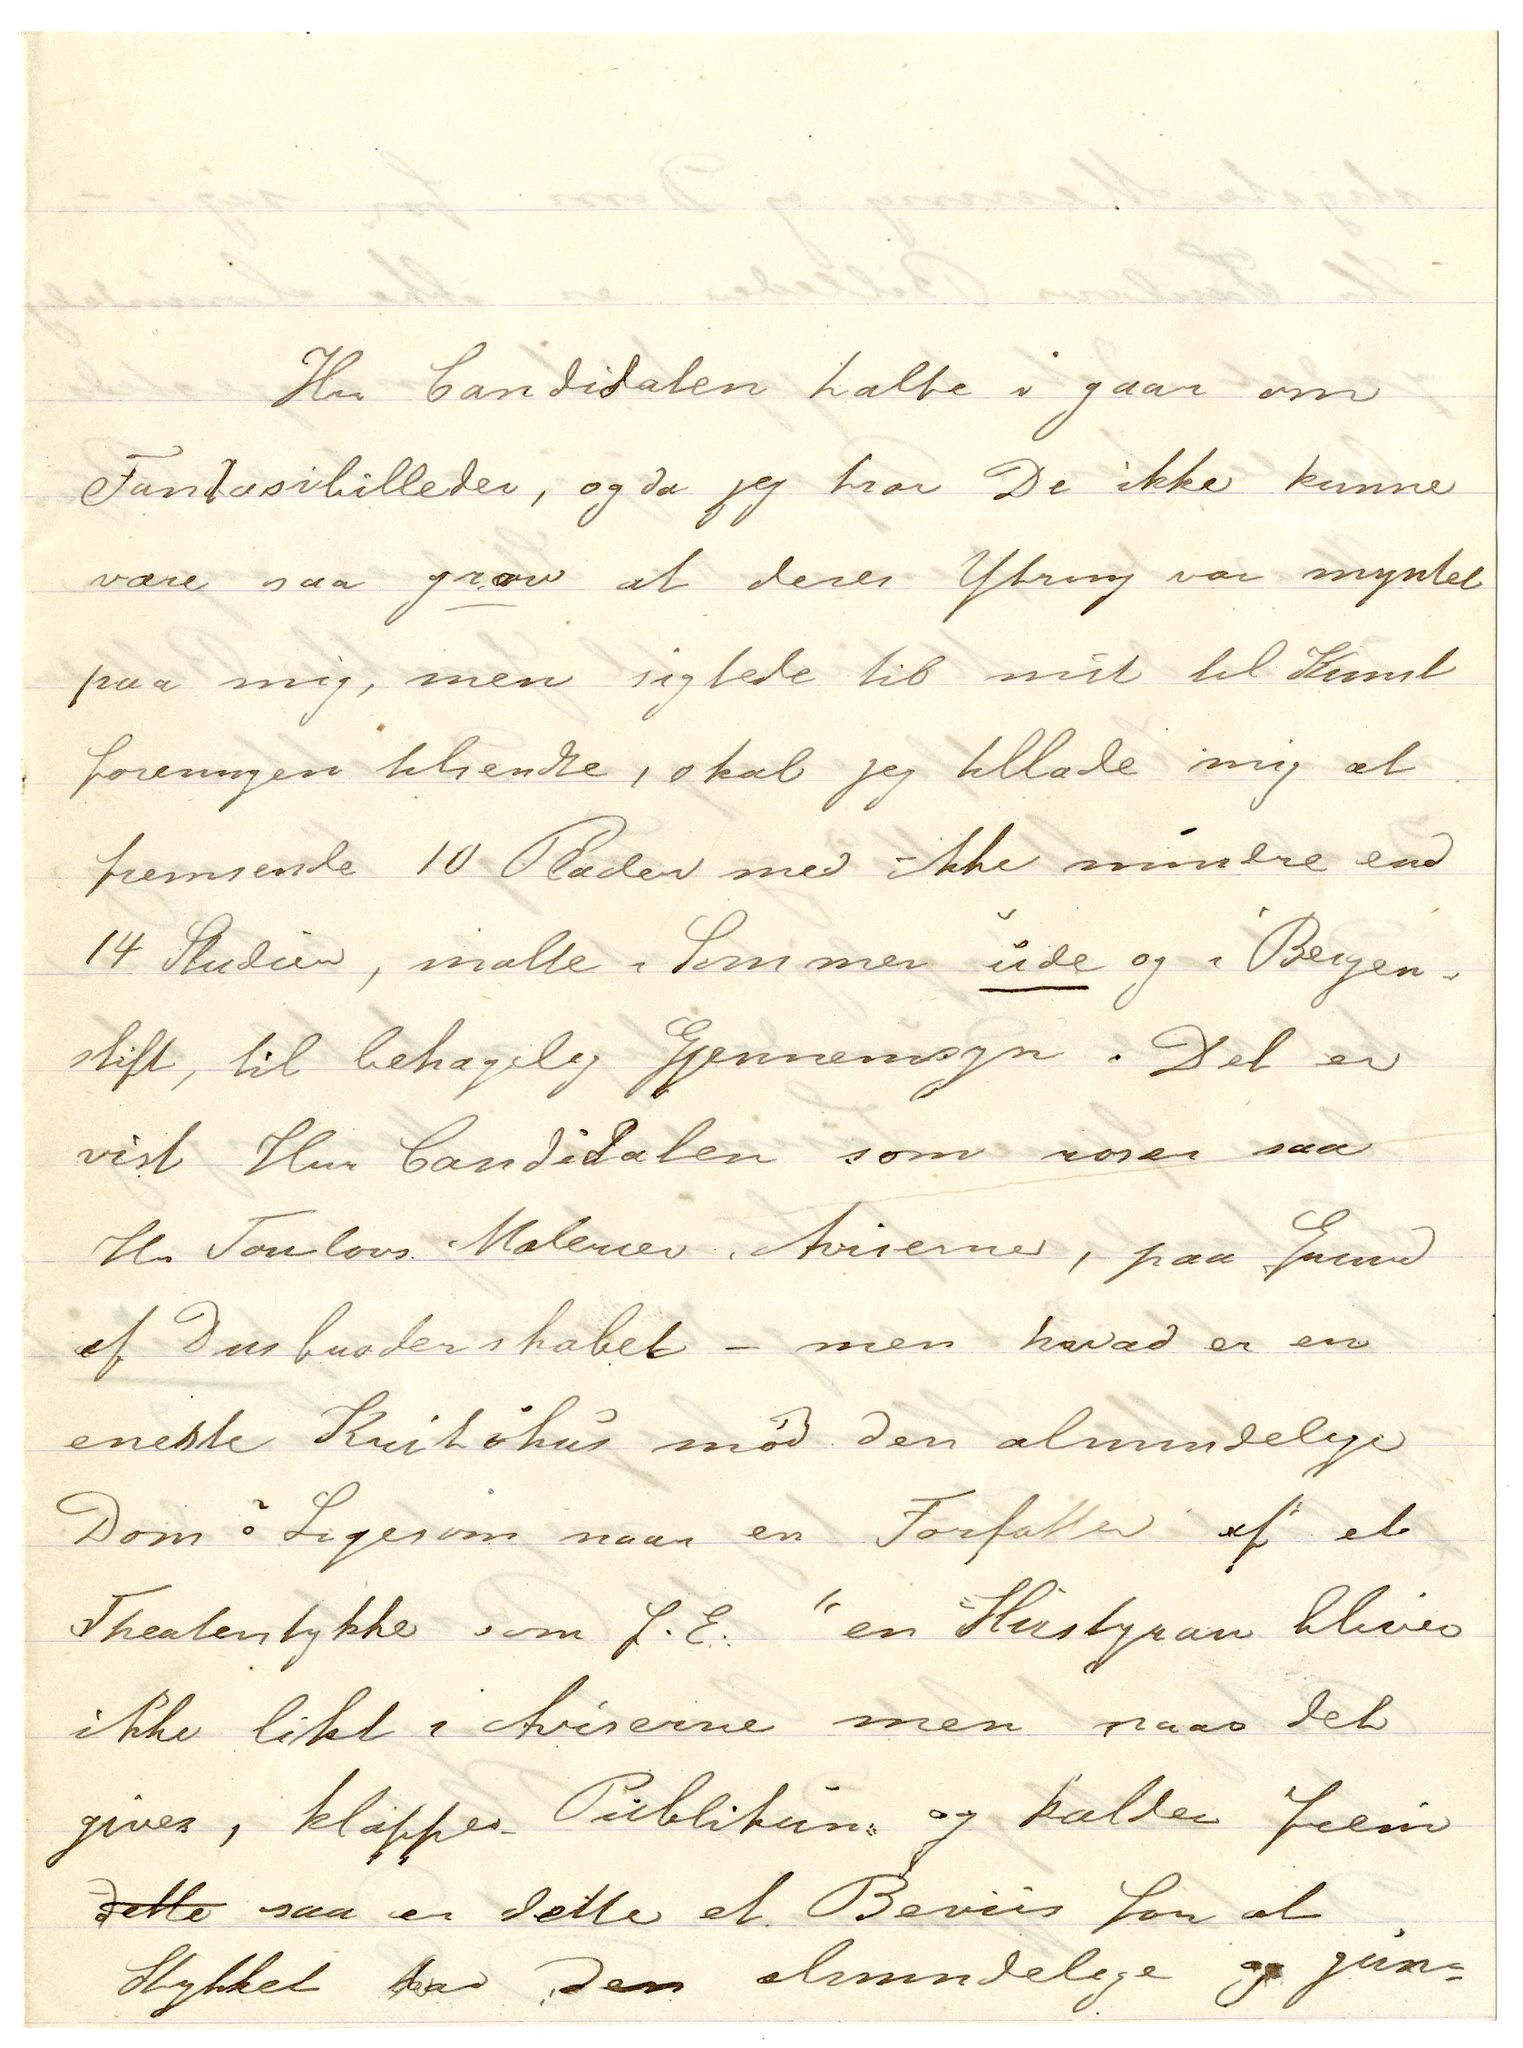 Hr Candidaten talte i gaar om
Fantasibilleder, og da jeg tror De ikke kunne
være saa grov at deres Ytring var myntet
paa mig, men sigtede til mit til Kunst
foreningen tilsendte, skal jeg tillade mig at
fremsende 10 Plader med ikke mindre end
14 Studier, malte i Sommer ude og i Bergen-
stift, til behagelig Gjennemsyn. Det er
vist Herr Candidaten som roser saa
Hr Toulovs Malerier i Aviserne, paa Grund
af Dusbroderskabet – men hvad er en
eneste Kritikus mod den almindelige
Dom? Ligesom naar en Forfatter af et
Theaterstykke som f. E. "en Hustyran bliver
ikke likt i Aviserne men naar det
gives, klapper Publikum og kalder frem
dette saa er dette et Beviis for at
Stykket har den almindelige og gün-